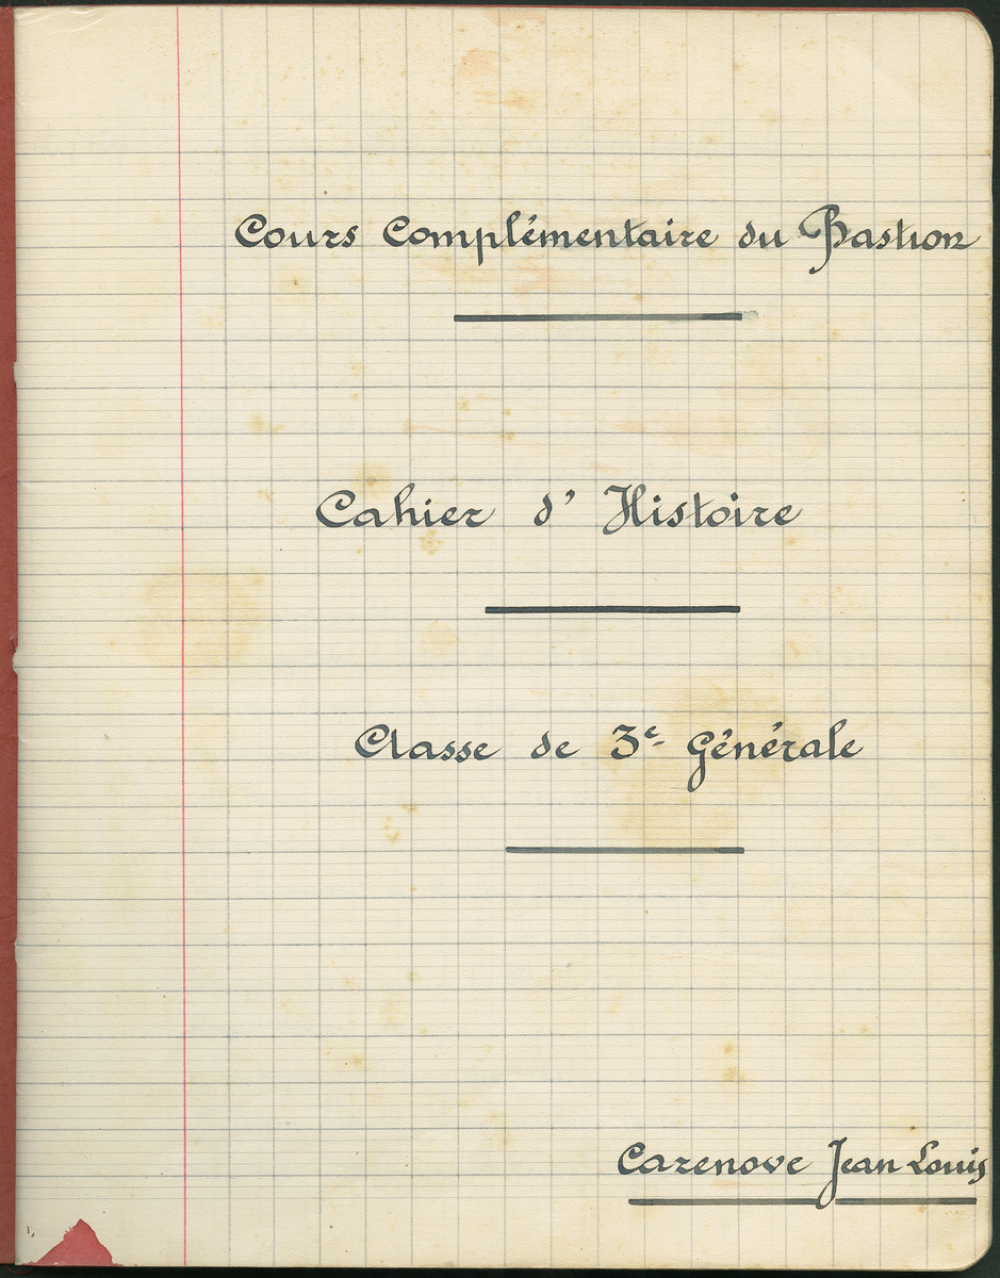 Cours Complémentaire du Bastion
Cahier d'Histoire
Classe de 3e Générale
Cazenove Jean Louis